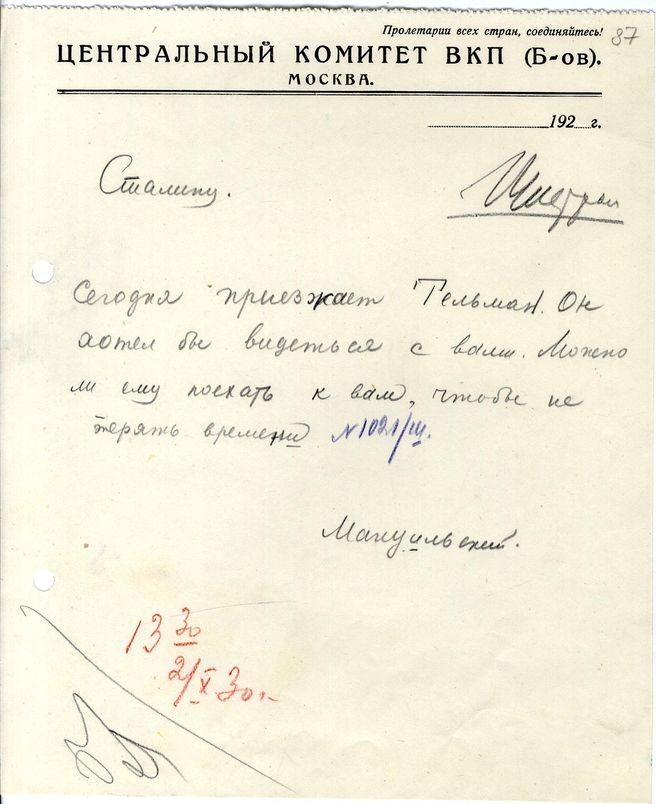 Пролетарии всех стран, соединяйтесь!
87
ЦЕНТРАЛЬНЫЙ КОМИТЕТ ВКП (Б-ов).
МОСКВА.
192 г.
Сталину.
Шифром
Сегодня приезжает Тельман. Он
хотел бы видеться с вами. Можно
ли ему поехать к вам, чтобы не
терять времени N1021/ш.
Мануильский.
13 30
2/X 30 г.